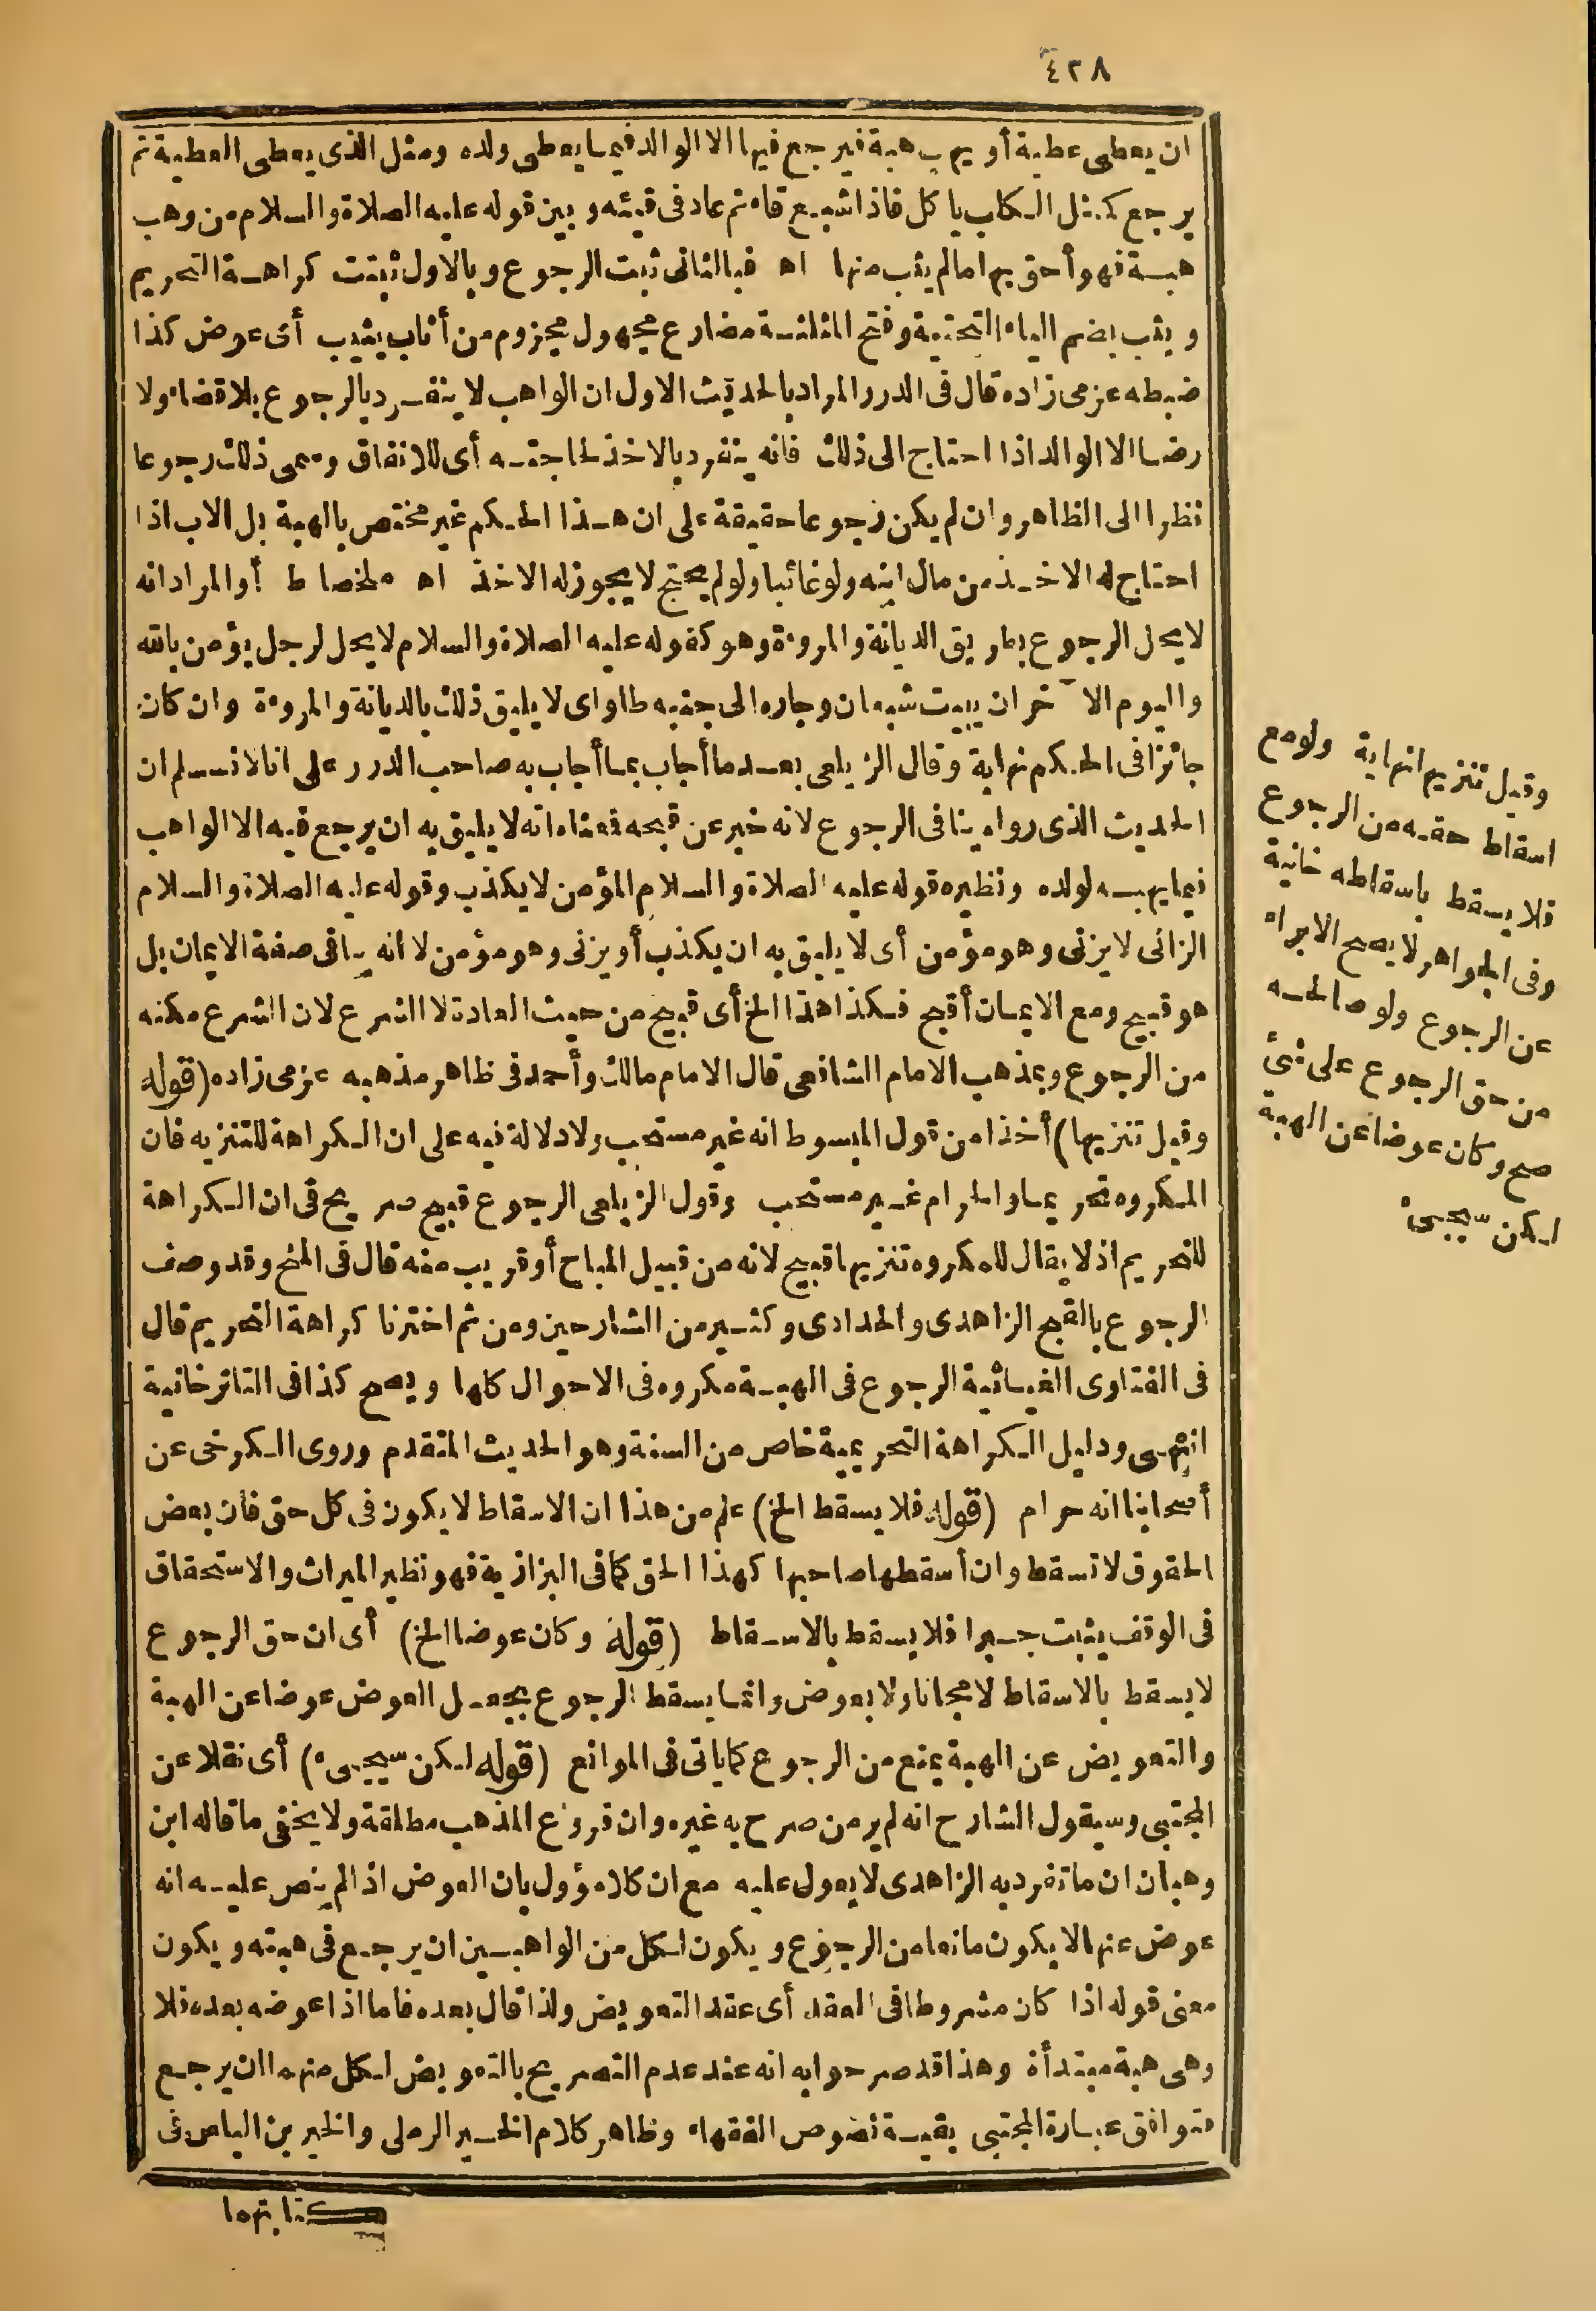 ٤٣٨
ان يعطى عطية أو يهب هبة فيرجع فيها الا الوالد فيما يعطى ولده ومثل الذى يعطى العطية ثم
يرجع كمثل الكلب يا كل فاذا شبع قاء ثم عاد فى قيئه وبين قوله عليه الصلاة والسلام من وهب
هبة فهو أحق بها مالم يثب منها اه فبالثانى ثبت الرجوع وبالاول ثبتت كراهة التحريم
ويثب بضم الياء التحتية وفتح المثلثة مضارع مجهول مجزوم من أثاب يثيب أى عوض كذا
ضبطه عزمى زاده قال فى الدرر المراد بالحديث الاول ان الواهب لا ينفرد بالرجوع بلا قضاء ولا
رضا الا الوالد اذا احتاج الى ذلك فانه ينفرد بالاخذ لحاجته أى للانفاق وسمى ذلك رجوعا
نظرا الى الظاهر وان لم يكن رجوعا حقيقة على ان هذا الحكم غير مختص بالهبة بل الاب اذا
احتاج له الاخذ من مال ابنه ولو غائبا ولو لم يحتج لا يجوز له الاخذ اه ملخصا ط أو المراد انه
لا يحل الرجوع بطريق الديانة والمروءة وهو كقوله عليه الصلاة والسلام لا يحل لرجل يؤمن بالله
واليوم الا خر ان يبيت شبعان وجاره الى جنبه طاو اى لا يليق ذلك بالديانة والمروءة وان كان
جائزا فى الحكم نهاية وقال الزيلعى بعد ما أجاب بما أجاب به صاحب الدرر على انا لا نسلم ان
الحديث الذى رواه ينافى الرجوع لانه خبر عن قبحه فمعناه انه لا يليق به ان يرجع فيه الا الواهب
فيما يهبه لولده ونظيره قوله عليه الصلاة والسلام المؤمن لا يكذب وقوله عليه الصلاة والسلام
الزانى لا يزنى وهو مؤمن أى لا يليق به ان يكذب أو يزنى وهو مؤمن لا انه ينافى صفة الايمان بل
هو قبيح ومع الايمان أقبح فكذا هذا الخ أى قبيح من حيث العادة لا الشرع لان الشرع مكنه
من الرجوع وبمذهب الامام الشافعى قال الامام مالك وأحمد فى ظاهر مذهبه عزمى زاده (قوله
وقيل تنزيها) أخذا من قول المبسوط انه غير مستحب ولا دلالة فيه على ان الكراهة للتنزيه فان
المكروه تحريما والحرام غير مستحب وقول الزيلعى الرجوع قبيح صريح فى ان الكراهة
للتحريم اذ لا يقال للمكروه تنزيها قبيح لانه من قبيل المباح أو قريب منه قال فى المنح وقد وصف
الرجوع بالقبح الزاهدى والحدادى وكثير من الشارحين ومن ثم اخترنا كراهة التحريم قال
فى الفتاوى الغياثية الرجوع فى الهبة مكروه فى الاحوال كلها ويصح كذا فى التاترخانية
انتهى ودليل الكراهة التحريمية خاص من السنة وهو الحديث المتقدم وروى الكرخى عن
أصحابنا انه حرام (قوله فلا يسقط الخ) علم من هذا ان الاسقاط لا يكون فى كل حق فان بعض
الحقوق لا تسقط وان أسقطها صاحبها كهذا الحق كما فى البزازية فهو نظير الميراث والاستحقاق
فى الوقف يثبت جبرا فلا يسقط بالاسقاط (قوله وكان عوضا الخ) أى ان حق الرجوع
لا يسقط بالاسقاط لا مجانا ولا بعوض وانما يسقط الرجوع بجعل العوض عوضا عن الهبة
والتعويض عن الهبة يمنع من الرجوع كما ياتى فى الموانع (قوله لكن سيجىء) أى نقلا عن
المجتبى وسيقول الشارح انه لم ير من صرح به غيره وان فروع المذهب مطلقة ولا يخفى ما قاله ابن
وهبان ان ما تفرد به الزاهدى لا يعول عليه مع ان كلامه مؤول بان العوض اذا لم ينص عليه انه
عوض عنها لا يكون مانعا من الرجوع ويكون لكل من الواهبين ان يرجع فى هبته ويكون
معنى قوله اذا كان مشروطا فى العقد أى عقد التعويض ولذا قال بعده فاما اذا عوضه بعده فلا
وهى هبة مبتدأة وهذا قد صرحوا به انه عند عدم التصريح بالتعويض لكل منهما ان يرجع
فتوافق عبارة المجتبى بقية نصوص الفقهاء وظاهر كلام الخير الرملى والخير بن الياس فى
كتابتهما
وقيل تنزيها نهاية ولو مع
اسقاط حقه من الرجوع
فلا يسقط باسقاطه خانية
وفى الجواهر لا يصح الابراء
عن الرجوع ولو صالحه
من حق الرجوع على شئ
صح وكان عوضا عن الهبة
لكن سيجىء